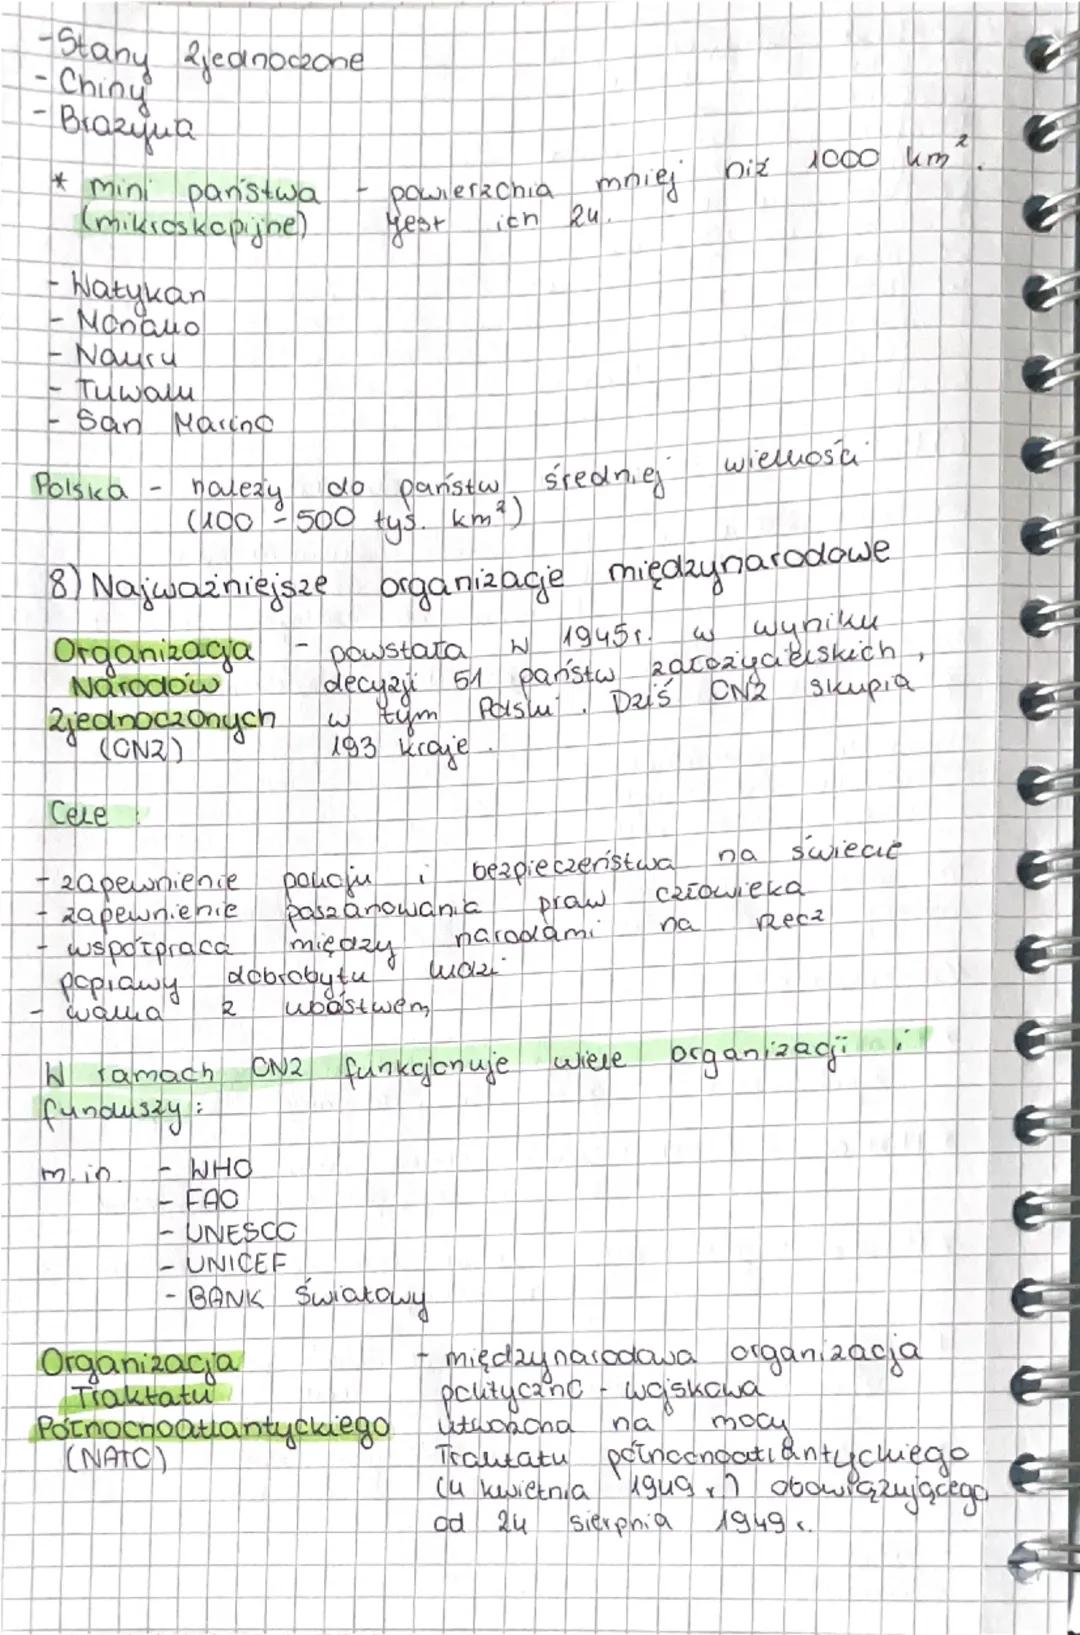 - Stany Zjednoczone
- Chiny
- Brazylia
* mini państwa - powierzchnia mniej niż 1000 km².
(mikroskopijne) Jest ich 24.
- Watykan
- Monako
- Nauru
- Tuwalu
- San Marino
Polska - należy do państw średniej wielkości
(100 - 500 tyś. km²)
8) Najważniejsze organizacje międzynarodowe
Organizacja - powstała w 1945r. w wyniku
Narodów decyzji 51 państw założycielskich,
Zjednoczonych w tym Polski. Dziś ONZ skupia
(ONZ) 193 kraje.
Cele :
- zapewnienie pokoju i bezpieczeństwa na świecie
- zapewnienie poszanowania praw człowieka
- współpraca między narodami na rzecz
poprawy dobrobytu ludzi
- walka z ubóstwem
W ramach ONZ funkcjonuje wiele organizacji i
funduszy :
m.in. - WHO
- FAO
- UNESCO
- UNICEF
- BANK Światowy
Organizacja - międzynarodowa organizacja
Traktatu polityczno - wojskowa
Północnoatlantyckiego utworzona na mocy
(NATO) Traktatu północnoatlantyckiego
(4 kwietnia 1949 r.) obowiązującego
od 24 sierpnia 1949 r.